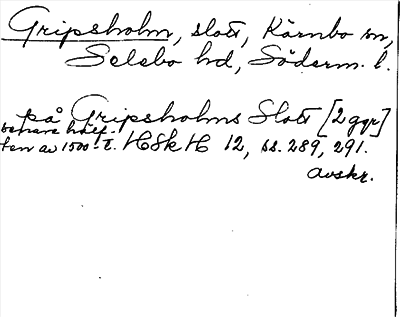 Gripsholm, slott, Kärnbo sn,
Selebo hd, Söderm. l.
på Gripsholms Slott [2 ggr]
senare hälf-
ten av 1500-t. HSkH 12, ss. 289, 291.
Avskr.